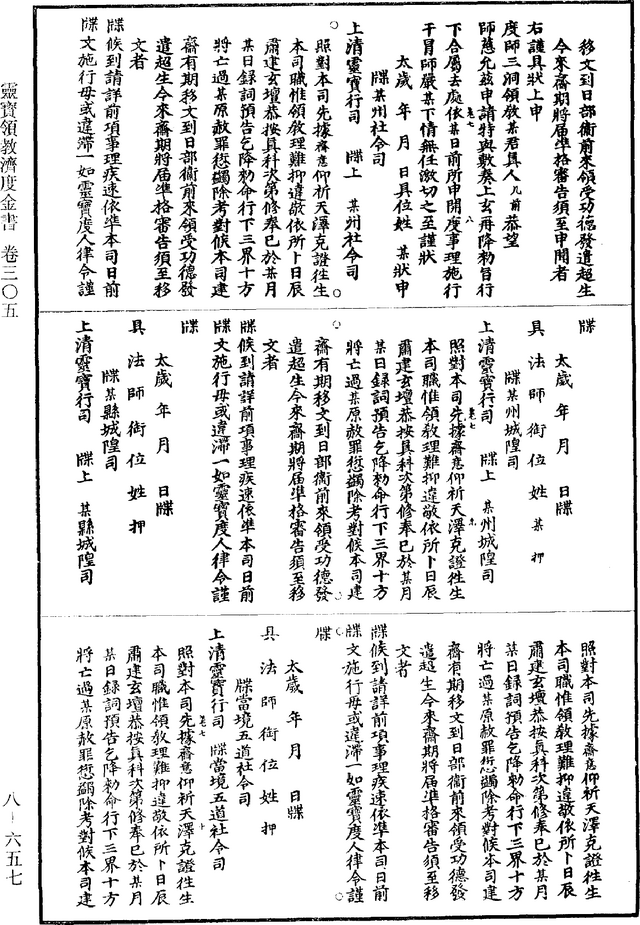 移文到日部衛前來領受功德發遣超生
今來齋期將屆準格審告須至申聞者
右謹具狀上申
度師三洞領教某君真人几前恭望
師慈允茲申請特與敷奏上玄冊降勑旨行
下合屬去處依某日前所申開度事理施行
干冒師嚴某下情無任激切之至謹狀
太歲 年 月 日具位姓 某狀申
牒某州社令司
上清靈寶行司 牒上 某州社令司
照對本司先據齋意仰祈天澤克證徃生
本司職惟領教理難抑違敬依所卜日辰
肅建玄壇恭按真科次第修奉已於某月
某日録詞預告乞降勑命行下三界十方
將亡過某原赦罪愆蠲除考對候本司建
齋有期移文到日部衛前來領受功德發
遣超生今來齋期將屆準格審告須至移
文者
牒候到請詳前項事理疾速依準本司日前
牒文施行毋或違滯一如靈寶度人律令謹
牒
太歲 年 月 日牒
具 法 師 銜 位 姓 某 押
牒某州城隍司
上清靈寶行司 牒上 某州城隍司
照對本司先據齋意仰祈天澤克證徃生
本司職惟領教理難抑違敬依所卜日辰
肅建玄壇恭按真科次第修奉已於某月
某日録詞預告乞降勑命行下三界十方
將亡過某原赦罪愆蠲除考對候本司建
齋有期移文到日部衛前來領受功德發
遣超生今來齋期將屆準格審告須至移
文者
牒候到請詳前項事理疾速依準本司日前
牒文施行毋或違滯一如靈寶度人律令謹
牒
太歲 年 月 日牒
具 法 師 銜 位 姓 押
牒某縣城隍司
上清靈寶行司 牒上 某縣城隍司
照對本司先據齋意仰祈天澤克證徃生
本司職惟領教理難抑違敬依所卜日辰
肅建玄壇恭按真科次第修奉已於某月
某日録詞預告乞降勑命行下三界十方
將亡過某原赦罪愆蠲除考對候本司建
齋有期移文到日部衛前來領受功德發
遣超生今來齋期將屆準格審告須至移
文者
牒候到請詳前項事理疾速依準本司日前
牒文施行毋或違滯一如靈寶度人律令謹
牒
太歲 年 月 日牒
具 法 師 銜 位 姓 押
牒當境五道社令司
上清靈寶行司 牒當境五道社令司
照對本司先據齋意仰祈天澤克證徃生
本司職惟領教理難抑違敬依所卜日辰
肅建玄壇恭按真科次第修奉已於某月
某日録詞預告乞降勑命行下三界十方
將亡過某原赦罪愆蠲除考對候本司建
靈寶領教濟度金書 卷三〇五
八－六五七